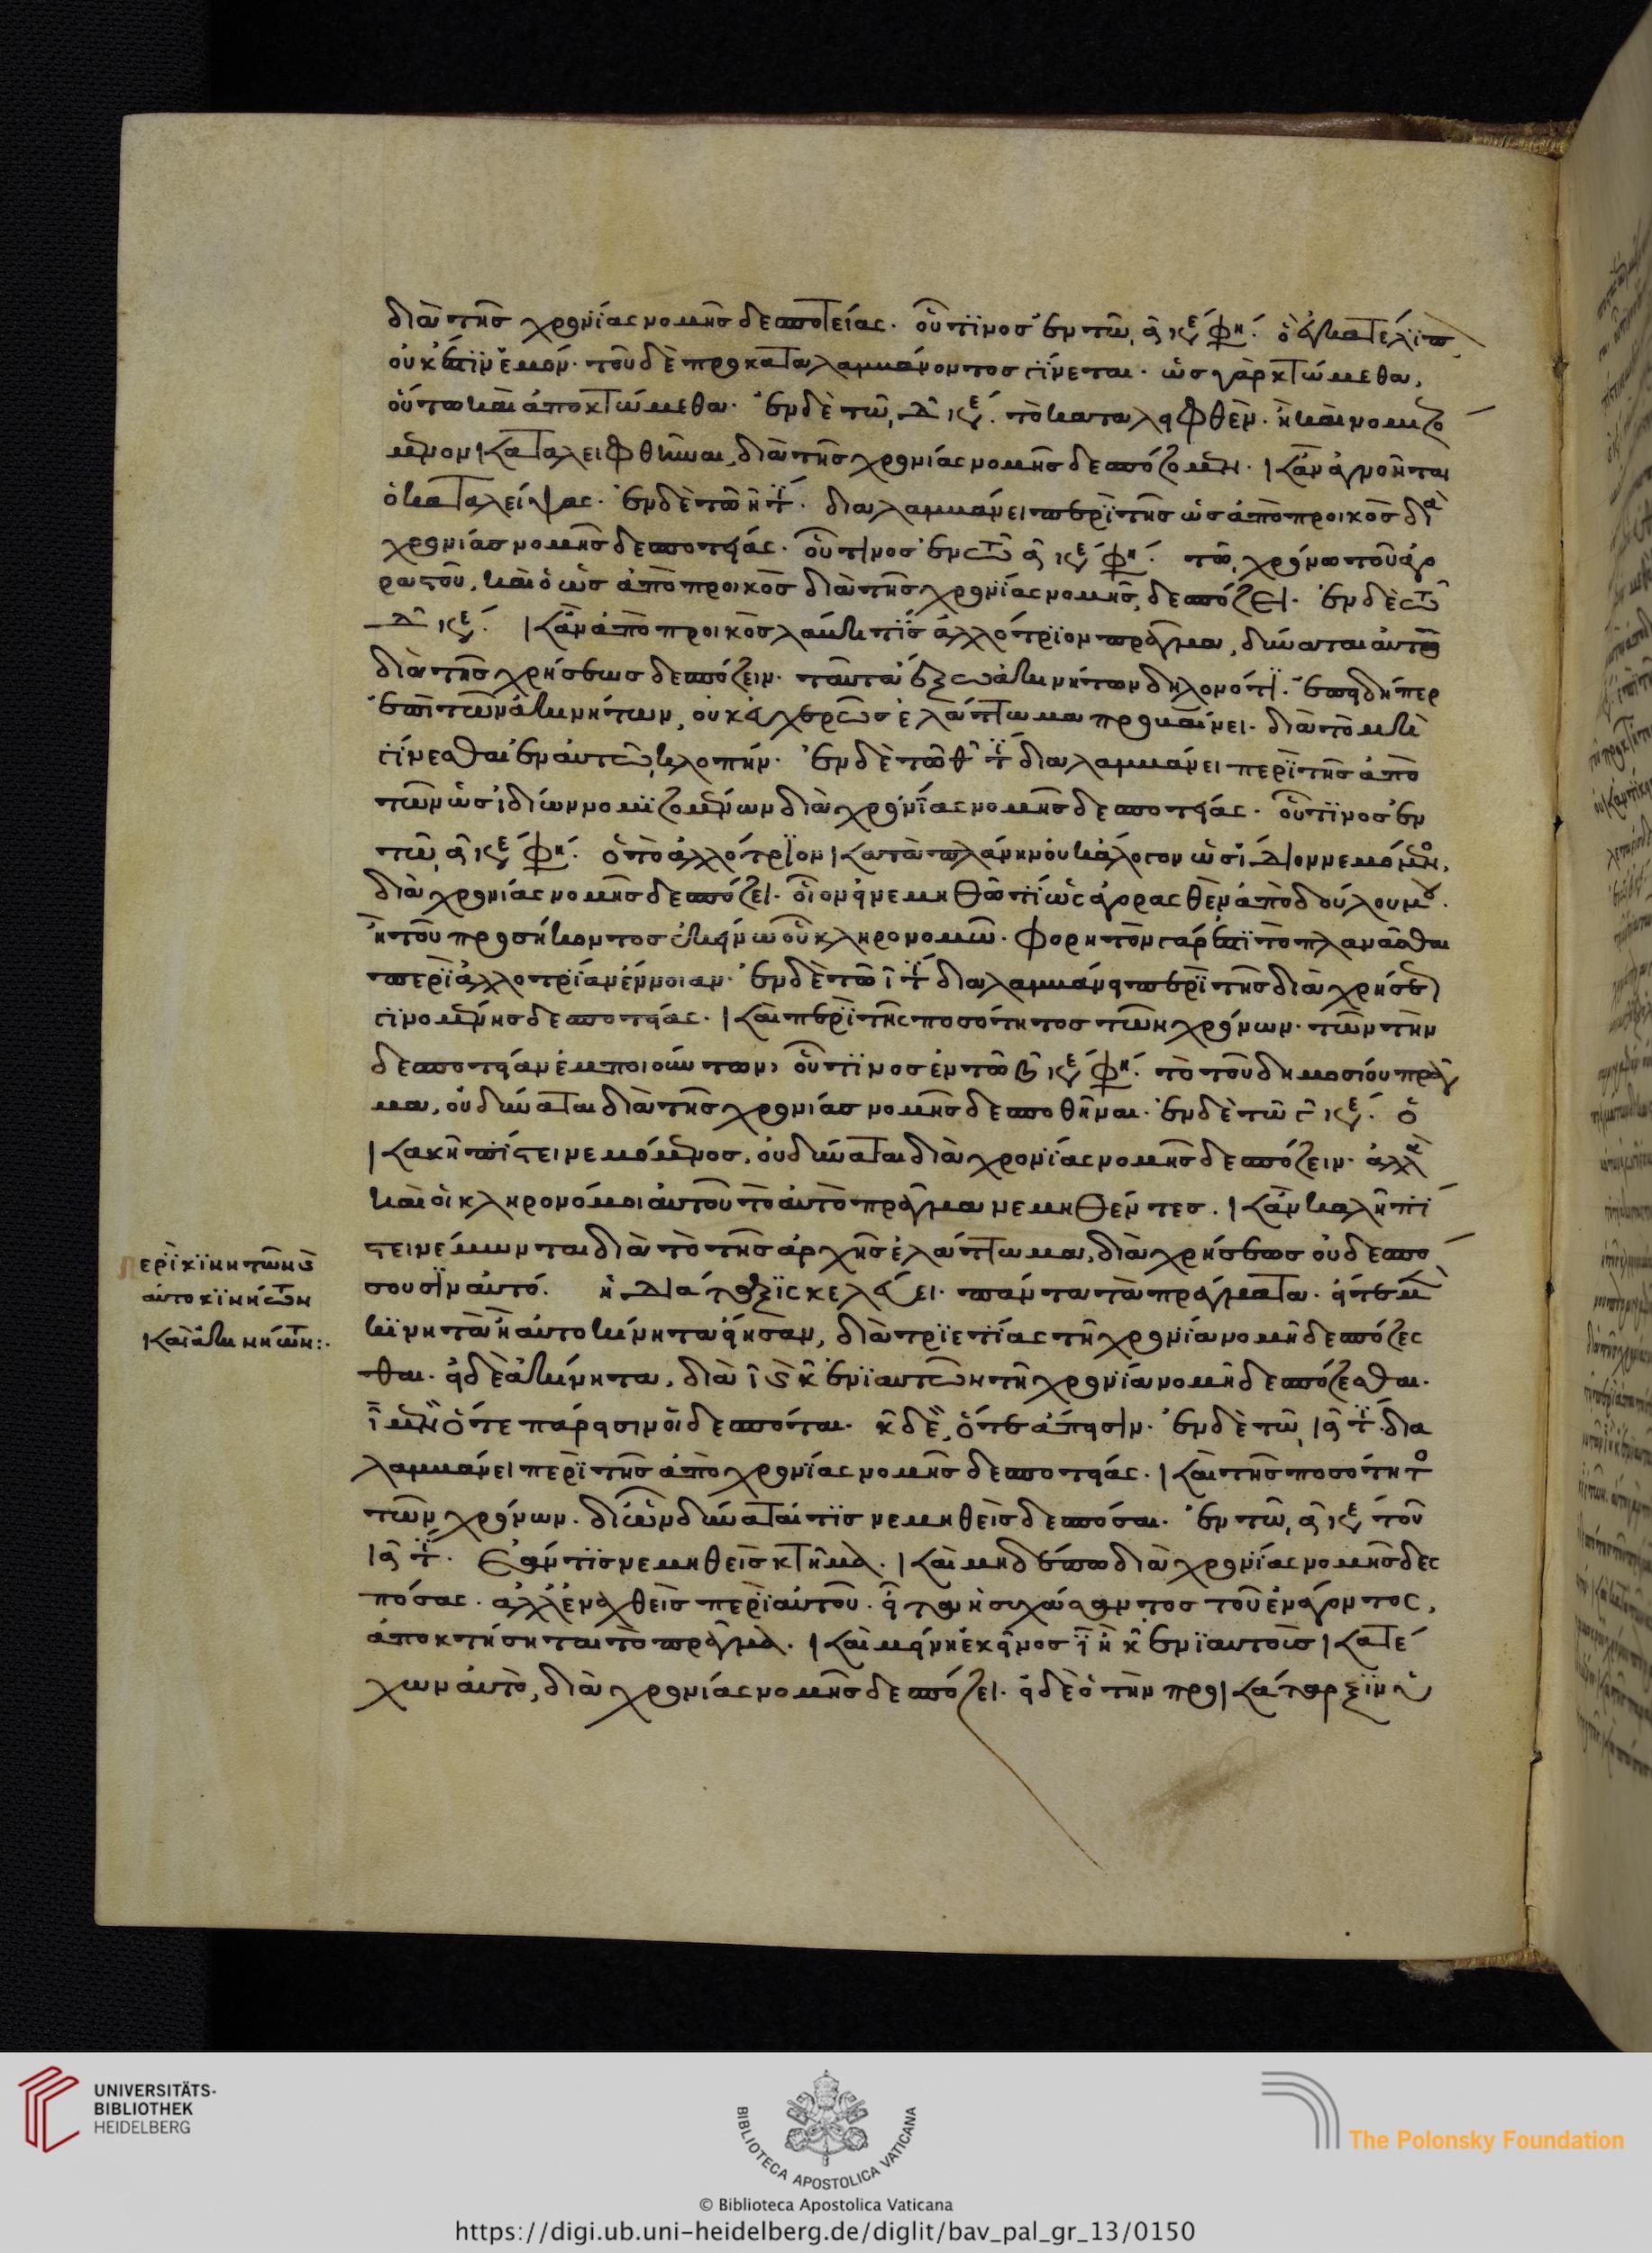 διὰ τῆς χρονίας νομῆς δεσποτείας. οὗτινος ἐν τῷ α κε φη. ὃ ἐγκατέλιπ
οὐκ ἔστιν ἐμόν. τοῦ δὲ προκαταλαμβάνοντος γίνεται. ὡς γὰρ κτώμεθα,
οὕτω καὶ ἀποκτώμεθα. ἐν δὲ τῷ δ κε. τὸ καταληφθὲν. ἢ καὶ νομιζο
μενον καταλειφθῆναι, διὰ τῆς χρονίας νομῆς δεσπόζομεν. κἂν ἀγνοῆται
ὁ καταλείψας. ἐν δὲ τῷ η τι. διαλαμβάνει περὶ τῆς ὡς ἀπὸ προικὸς διὰ
χρονίας νομῆς δεσποτείας. οὗτινος ἐν τῷ α κε φη. τῷ χρόνω τοῦ ἀρ
ραγοῦ, καὶ ὁ ὡς ἀπὸ προικὸς διὰ τῆς χρονίας νομῆς, δεσπόζει. ἐν δὲ τῷ
δ κε. κἂν ἀπὸ προικὸς λάβῃ τίς ἀλλότριον πρᾶγμα, δύναται αὐτοῦ
διὰ τῆς χρήσεως δεσπόζειν. ταῦτα ἐξ ἀκινήτων δηλονότι. ἐπειδήπερ
ἐπὶ τῶν ἀκινήτων, οὐκ εὐχερῶς ἐλάττωμα προβαίνει. διὰ τὸ μὴ
γίνεσθαι ἐν αὐτῷ κλοπήν. ἐν δὲ τῷ θ τι διαλαμβάνει περὶ τῆς ἀπὸ
τῶν ὡς ἰδίων νομιζομένων διὰ χρονίας νομῆς δεσποτείας. οὗτινος ἐν
τῷ α κε φη. ὁ τὸ ἀλλότριον κατὰ πλάνην οὐκ ἄλογον ὡς ἴδιον νεμόμενος,
διὰ χρονίας νομῆς δεσπόζει. οἷον ἐνεμήθῶ τί ὡς ἀγορασθὲν ἀπὸ δούλου μου.
ἢ τοῦ προσήκοντος ἐκείνω οὗ κληρονομῶ. φορητὸν γάρ ἐστι τὸ πλανᾶσθαι
περὶ ἀλλοτρίαν ἔννοιαν. ἐν δὲ τῷ ι τι διαλαμβάνει περὶ τῆς διὰ χρήσεως
γινομένης δεσποτείας. καὶ περὶ τῆς ποσότητος τῶν χρόνων. τῶν τὴν
δεσποτείαν ἐμποιούντων, οὗτινος ἐν τῷ β κε φη. τὸ τοῦ δημοσίου πρᾶγ
μα, οὐ δύναται διὰ τῆς χρονίας νομῆς δεσποθῆναι. ἐν δὲ τῷ γ κε. ὁ
κακῆ πίστει νεμόμενος, οὐ δύναται διὰ χρονίας νομῆς δεσπόζειν. ἀλλὰ
καὶ οἱ κληρονόμοι αὐτοῦ τὸ αὐτὸ πρᾶγμα νεμηθέντες. κἂν καλῆ πί
στει νέμωνται διὰ τὸ τῆς ἀρχῆς ἐλάττωμα, διὰ χρήσεως οὐ δεσπο
σουσιν αὐτό. ἡ διάταξις κελεύει. πάντα τὰ πράγματα. εἴτε μὲν
κινητὰ ἢ αὐτοκίνητα εἴησαν, διὰ τριετίας τῆ χρονία νομῆ δεσπόζες
θαι. εἰ δὲ ἀκίνητα, διὰ ι ϛ κ ἐνιαυτῶν τῆ χρονία νομῆ δεσπόζεσθαι.
ι μὲν ὅτε πάρεισιν οἱ δεσπόται. κ δὲ, ὅτε ἄπεισιν. ἐν δὲ τῷ ια τι δια
λαμβάνει περὶ τῆς ἀπὸ χρονίας νομῆς δεσποτείας. καὶ τῆς ποσότητος
τῶν χρόνων. δι' ὧν δύναταί τις νεμηθεὶς δεσπόσαι. ἐν τῷ α κε τοῦ
ια τι. Ἐάν τις νεμηθεὶς κτῆμα. καὶ μηδέπω διὰ χρονίας νομῆς δες
πόσας. ἀλλ' ἐναχθεὶς περὶ αὐτοῦ. εἶτα ἡσυχάσαντος τοῦ ἐνάγοντος,
ἀποκτήσηται τὸ πρᾶγμα. καὶ μείνη ἐκεῖνος ι ἢ κ ἐνιαυτοῖς κατέ
χων αὐτὸ, διὰ χρονίας νομῆς δεσπόζει. εἰ δὲ ὁ τὴν προκάταρξιν
περὶ κινητῶν ϛ
αὐτοκινήτων
καὶ ἀκινήτων:.
UNIVERSITÄTS-
BIBLIOTHEK
HEIDELBERG
BIBLIOTECA APOSTOLICA VATICANA
© Biblioteca Apostolica Vaticana
The Polonsky Foundation
https://digi.ub.uni-heidelberg.de/diglit/bav_pal_gr_13/0150